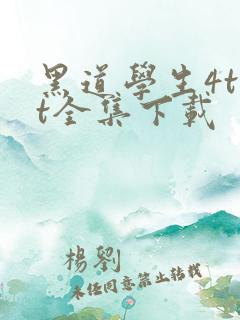 黑道學生4t
t全集下載
楊劉
未经同意禁止转载